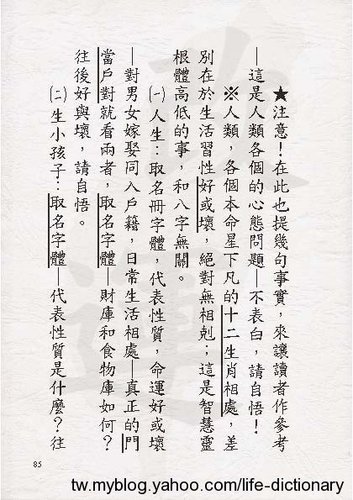 ★注意！在此也提幾句事實，來讓讀者作參考
—這是人類各個的心態問題—不表白，請自悟！
※人類，各個本命星下凡的十二生肖相處，差
別在於生活習性好或壞，絕對無相剋；這是智慧靈
根體高低的事，和八字無關。
㈠人生：取名冊字體，代表性質，命運好或壞
—對男女嫁娶同入戶籍，日常生活相處—真正的門
當戶對就看兩者，取名字體—財庫和食物庫如何？
往後好與壞，請自悟。
㈡生小孩子：取名字體—代表性質是什麼？往
85
tw.myblog.yahoo.com/life-dictionary